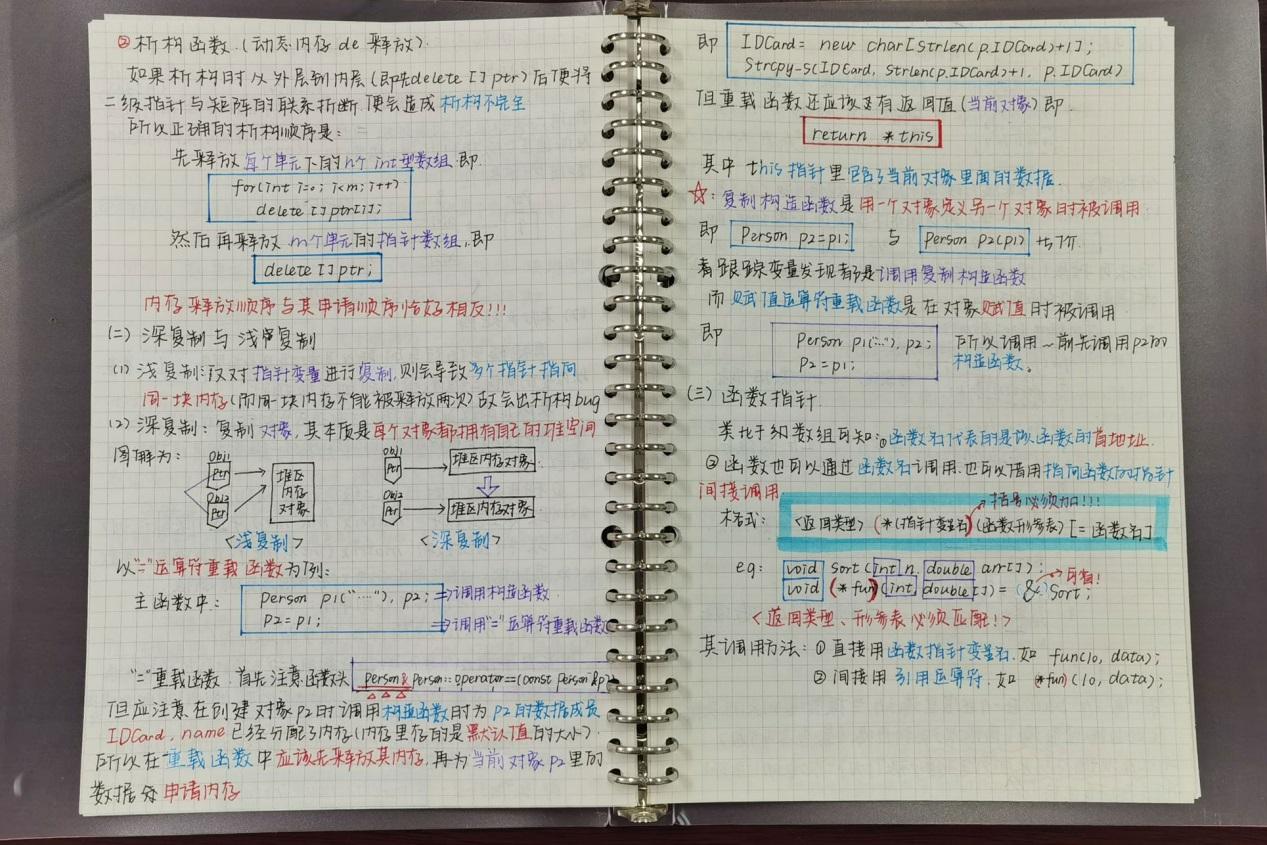 ②析构函数.(动态内存 de 释放).
如果析构时从外层到内层(即先delete []ptr)后便将
二级指针与矩阵的联系折断 便会造成析构不完全
所以正确的析构顺序是:
先释放每个单元下的n个int型数组.即.
for(int i=0; i<m; i++)
delete []ptr[i];
然后再释放m个单元的指针数组,即
delete []ptr;
内存释放顺序与其申请顺序恰好相反!!!
(二)深复制与浅复制
(1)浅复制:仅对指针变量进行复制,则会导致多个指针指向
同一块内存(而同一块内存不能被释放两次)故会出析构bug
(2)深复制:复制对象,其本质是每个对象都拥有自己的堆空间
图解为:
Obj1
Ptr
Obj2
Ptr
堆区
内存
对象
<浅复制>
Obj1
Ptr
堆区内存对象
Obj2
Ptr
堆区内存对象
<深复制>
以"="运算符重载函数为例:
主函数中:
Person p1("……"), p2; ⇒调用构造函数
p2=p1; ⇒调用"="运算符重载函数
"="重载函数.首先注意函数头 Person& Person::operator==(const Person &p)
但应注意在创建对象p2时调用构造函数时为p2的数据成员
IDCard, name已经分配了内存(内存里存的是默认值的大小)
所以在重载函数中应该先释放其内存,再为当前对象p2里的
数据 申请内存
即 IDCard= new char[strlen(p.IDCard)+1];
Strcpy-s(IDCard, strlen(p.IDCard)+1, p.IDCard)
但重载函数还应该还有返回值(当前对象)即.
return *this
其中this指针里包含了当前对象里面的数据.
☆:复制构造函数是用一个对象定义另一个对象时被调用
即 Person p2=p1; 与 Person p2(p1)
看跟踪变量发现都是调用复制构造函数
而赋值运算符重载函数是在对象赋值时被调用
即 Person p1("…"), p2;
p2=p1;
所以调用~前先调用p2的
构造函数。
(三)函数指针.
类比于 数组可知:①函数名代表的是该函数的首地址.
②函数也可以通过函数名调用.也可以借用指向函数的指针
间接调用
括号必须加!!!
格式: <返回类型> (*(指针变量名)(函数形参表)[=函数名]
eg: void sort(int n, double arr[]);
void (*fun)(int, double[]) = & sort;
可省!
<返回类型、形参表必须匹配!>
其调用方法:①直接用函数指针变量名.如 fun(10, data);
②间接用引用运算符.如 (*fun)(10, data);